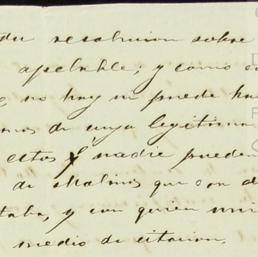 du resolucion sobre
apelable, y como
no hay ni puede
de cuya legitima
estos y nadie pueden
de Malinis que son d
y con quien
medio de citacion,